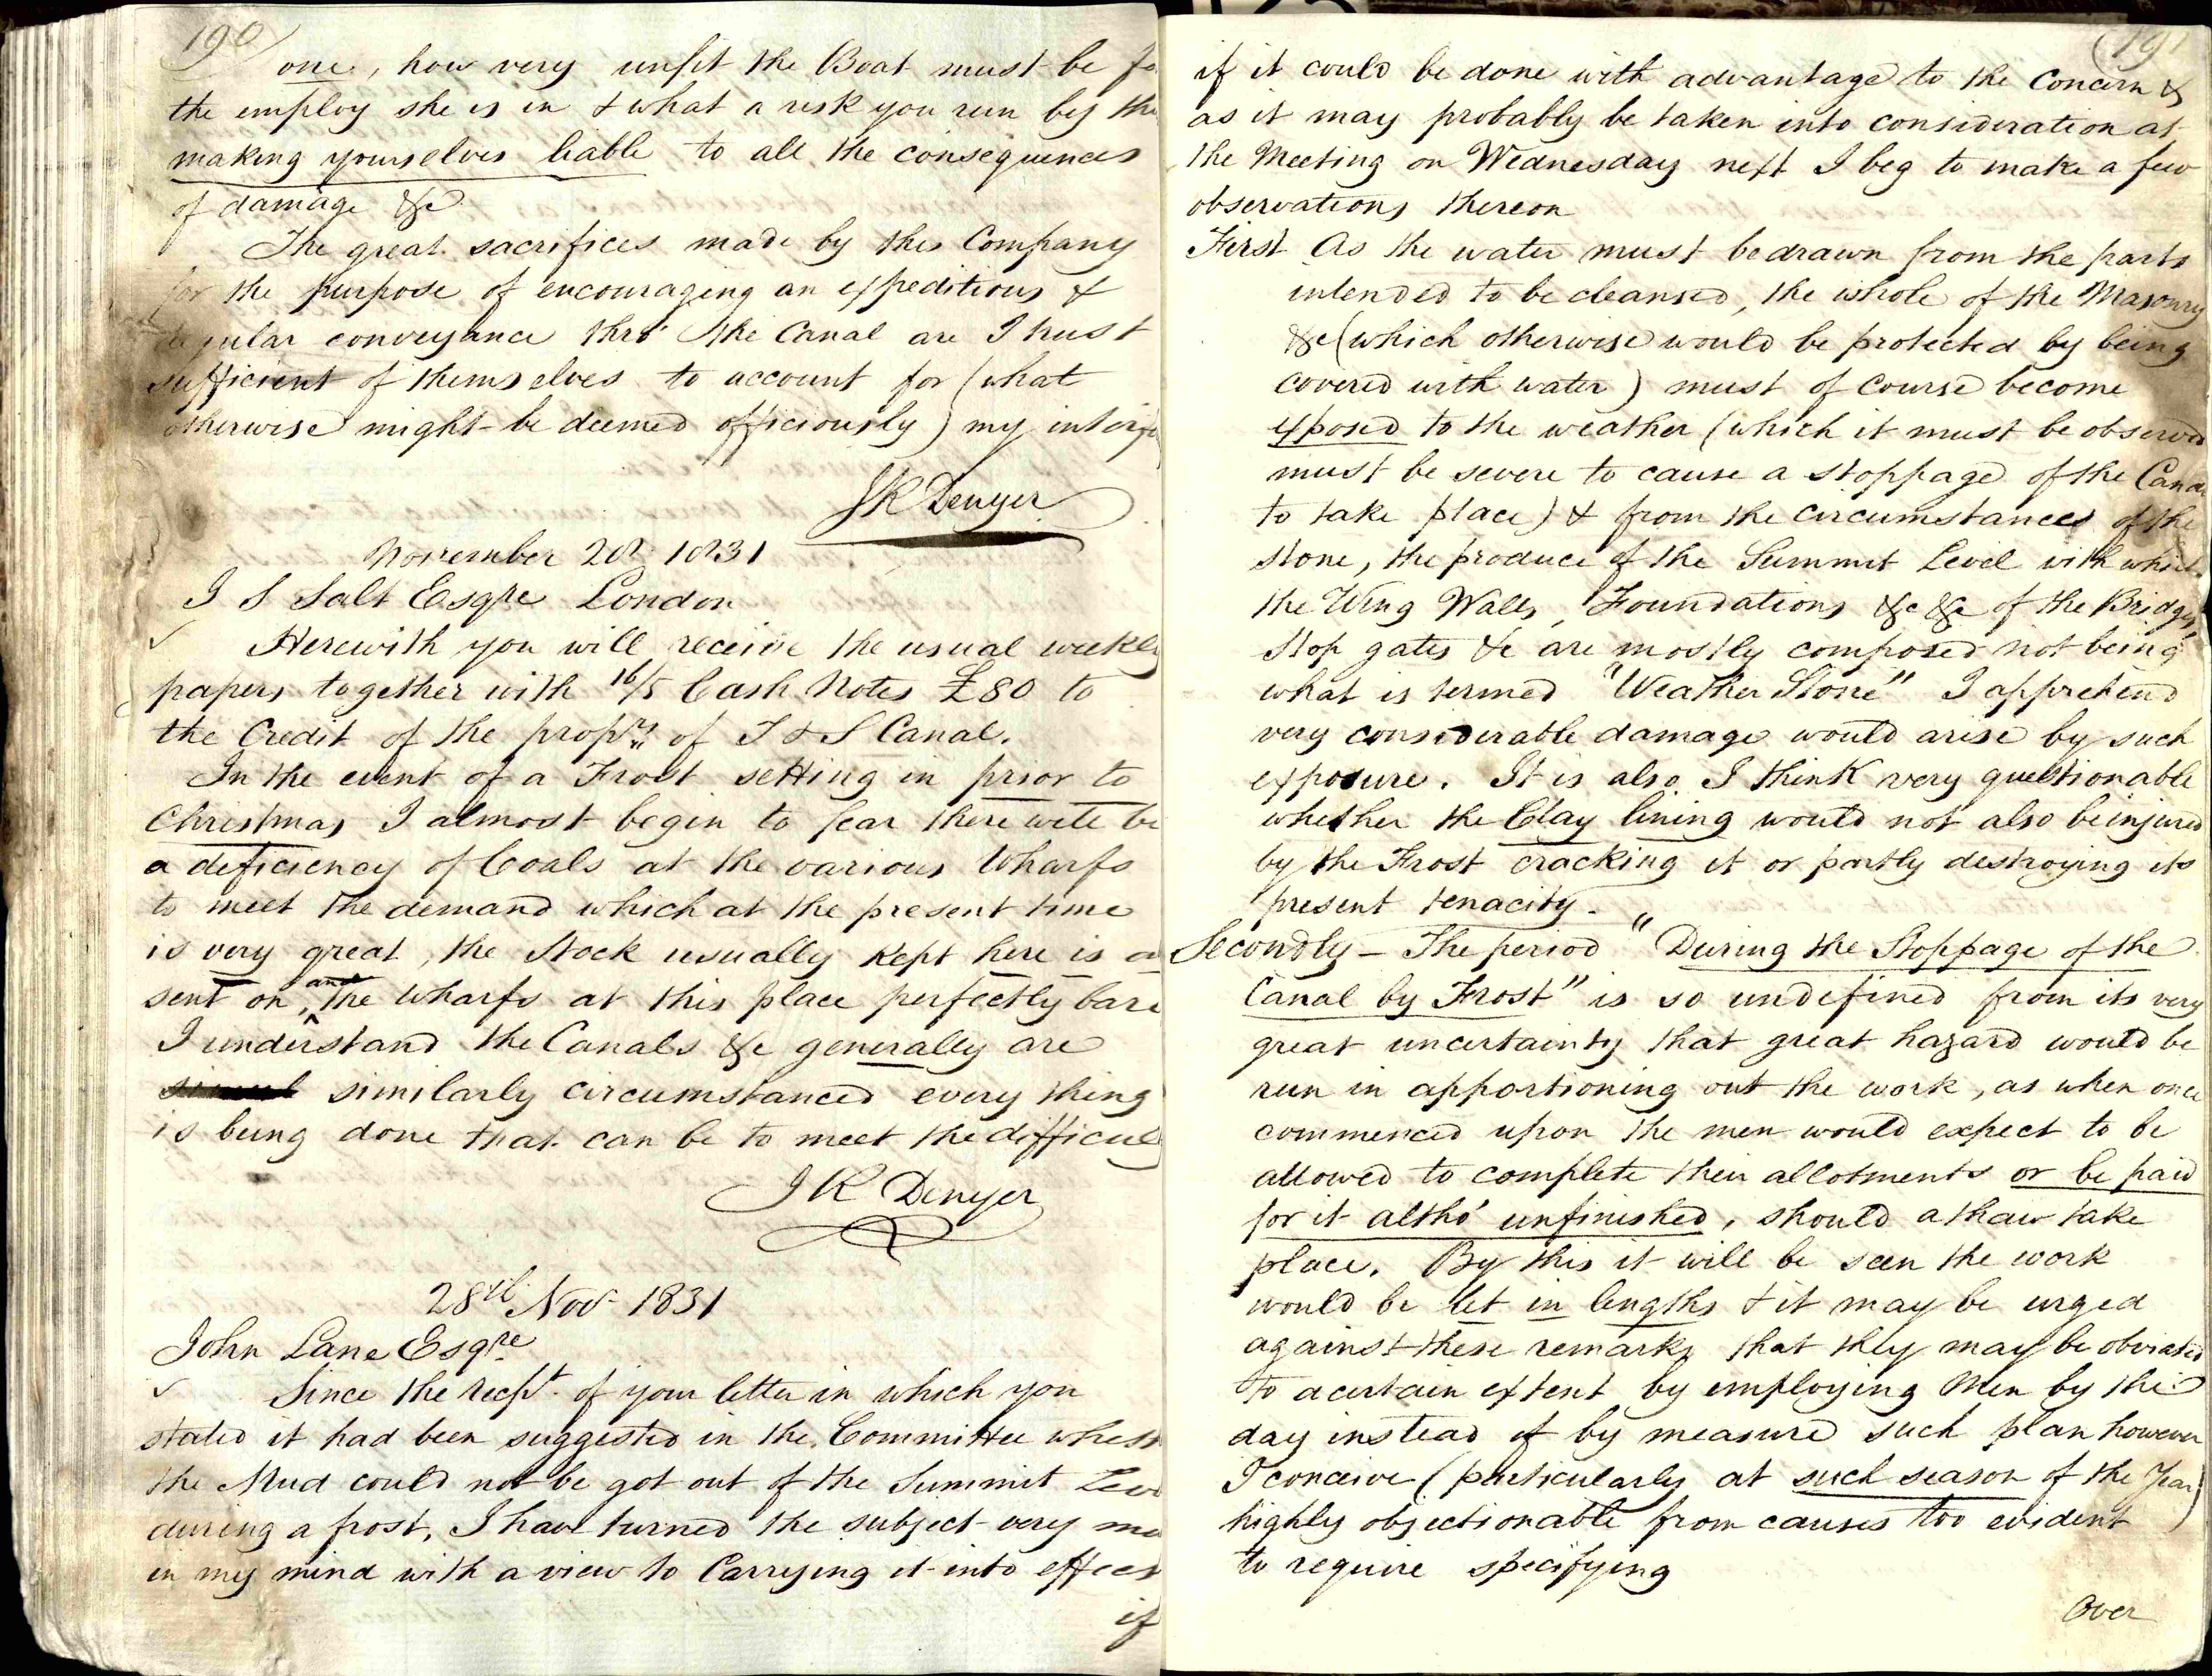 190
one, how very unfit the Boat must be fo
the employ she is in & what a risk you run by thu
making yourselves liable to all the consequences
of damage &c
The great sacrifices made by this Company
for the purpose of encouraging an expeditious &
regular conveyance thro' the Canal are I trust
sufficient of themselves to account for (what
otherwise might be deemed officiously) my interfe
JK Denyer
November 28 1831
I S Salt Esqre London
Herewith you will receive the usual weekly
papers together with 16/5 Cash Notes £80 to
the Credit of the proprs of T & S Canal.
In the event of a Frost setting in prior to
Christmas I almost begin to fear there will be
a deficiency of Coals at the various Wharfs
to meet the demand which at the present time
is very great, the Stock usually kept here is a
sent on, and the Wharfs at this place perfectly bare
I understand the Canals &c generally are
similarly circumstanced every thing
is being done that can be to meet the difficul
J K Denyer
28th Nov 1831
John Lane Esqre
Since the recpt. of your letter in which you
stated it had been suggested in the Committee wheth
the Mud could not be got out of the Summit Leve
during a frost, I have turned the subject very mu
in my mind with a view to Carrying it into effect
if
191
if it could be done with advantage to the Concern &
as it may probably be taken into consideration at
the Meeting on Wednesday next I beg to make a few
observations thereon
First As the water must be drawn from the parts
intended to be cleansed, the whole of the Masonry
&c (which otherwise would be protected by being
covered with water) must of course become
exposed to the weather (which it must be observed
must be severe to cause a stoppage of the Canal
to take place) & from the circumstances of the
stone, the produce of the Summit Level with which
the Wing Walls, Foundations &c &c of the Bridges,
Stop gates &c are mostly composed not being
what is termed "Weather Stone" I apprehend
very considerable damage would arise by such
exposure. It is also I think very questionable
whether the Clay lining would not also be injured
by the Frost cracking it or partly destroying its
present tenacity.
Secondly - The period "During the Stoppage of the
Canal by Frost" is so undefined from its very
great uncertainty that great hazard would be
run in apportioning out the work, as when once
commenced upon the men would expect to be
allowed to complete their allotments or be paid
for it altho' unfinished, should a thaw take
place. By this it will be seen the work
would be let in lengths & it may be urged
against these remarks that they may be obviated
to a certain extent by employing Men by the
day instead of by measure such plan however
I conceive (particularly at such season of the Year)
highly objectionable from causes too evident
to require specifying
Over